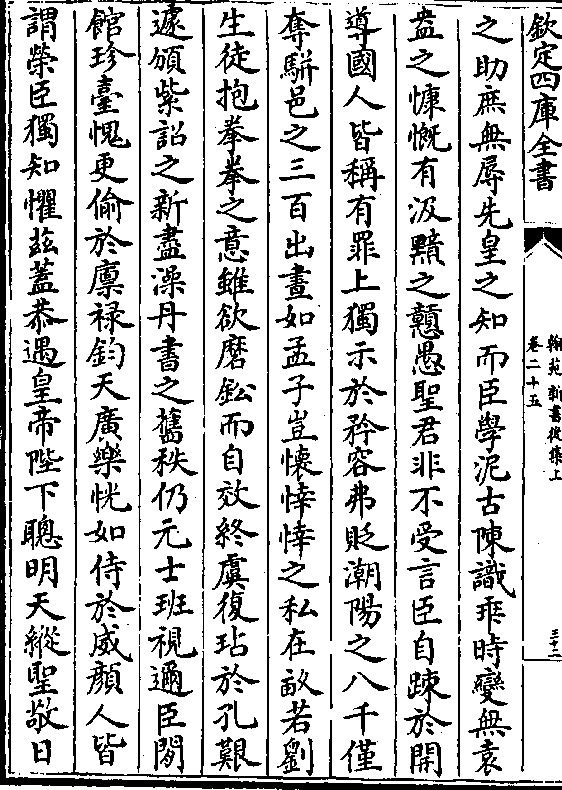 欽定四庫全書
翰苑新書後集上
卷二十五
三十二
之助庶無辱先皇之知而臣學泥古陳識乖時變無袁
盎之慷慨有汲黯之戇愚聖君非不受言臣自踈於開
導國人皆稱有罪上獨示於矜容弗貶潮陽之八千僅
奪駢邑之三百出晝如孟子豈懷悻悻之私在畝若劉
生徒抱拳拳之意雖欲磨鈆而自效終虞復玷於孔艱
遽頒紫詔之新盡澡丹書之舊秩仍元士班視邇臣閒
館珍臺愧更偷於廪禄鈞天廣樂恍如侍於威顔人皆
謂榮臣獨知懼兹蓋恭遇皇帝陛下聰明天縱聖敬日